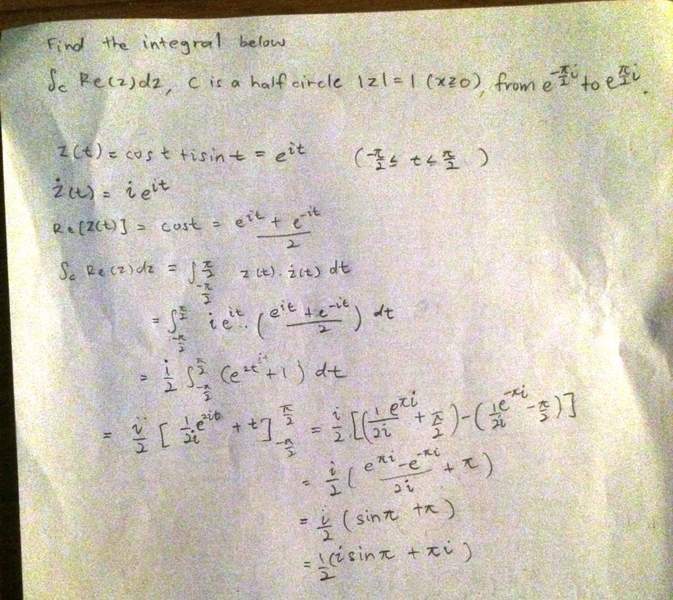 Find the integral below
∫c Re(z)dz, C is a half circle |z|=1 (x≥0), from e^{-π/2 i} to e^{π/2 i}.
z(t) = cos t + i sin t = e^{it} (-π/2 ≤ t ≤ π/2)
ż(t) = i e^{it}
Re[z(t)] = cos t = (e^{it} + e^{-it})/2
∫c Re(z)dz = ∫_{-π/2}^{π/2} z(t). ż(t) dt
= ∫_{-π/2}^{π/2} i e^{it}. ((e^{it} + e^{-it})/2) dt
= i/2 ∫_{-π/2}^{π/2} (e^{2ti} + 1) dt
= i/2 [1/2i e^{2it} + t]_{-π/2}^{π/2} = i/2 [(1/2i e^{πi} + π/2) - (1/2i e^{-πi} - π/2)]
= i/2 ((e^{πi} - e^{-πi})/2i + π)
= i/2 (sin π + π)
= 1/2 (i sin π + πi)